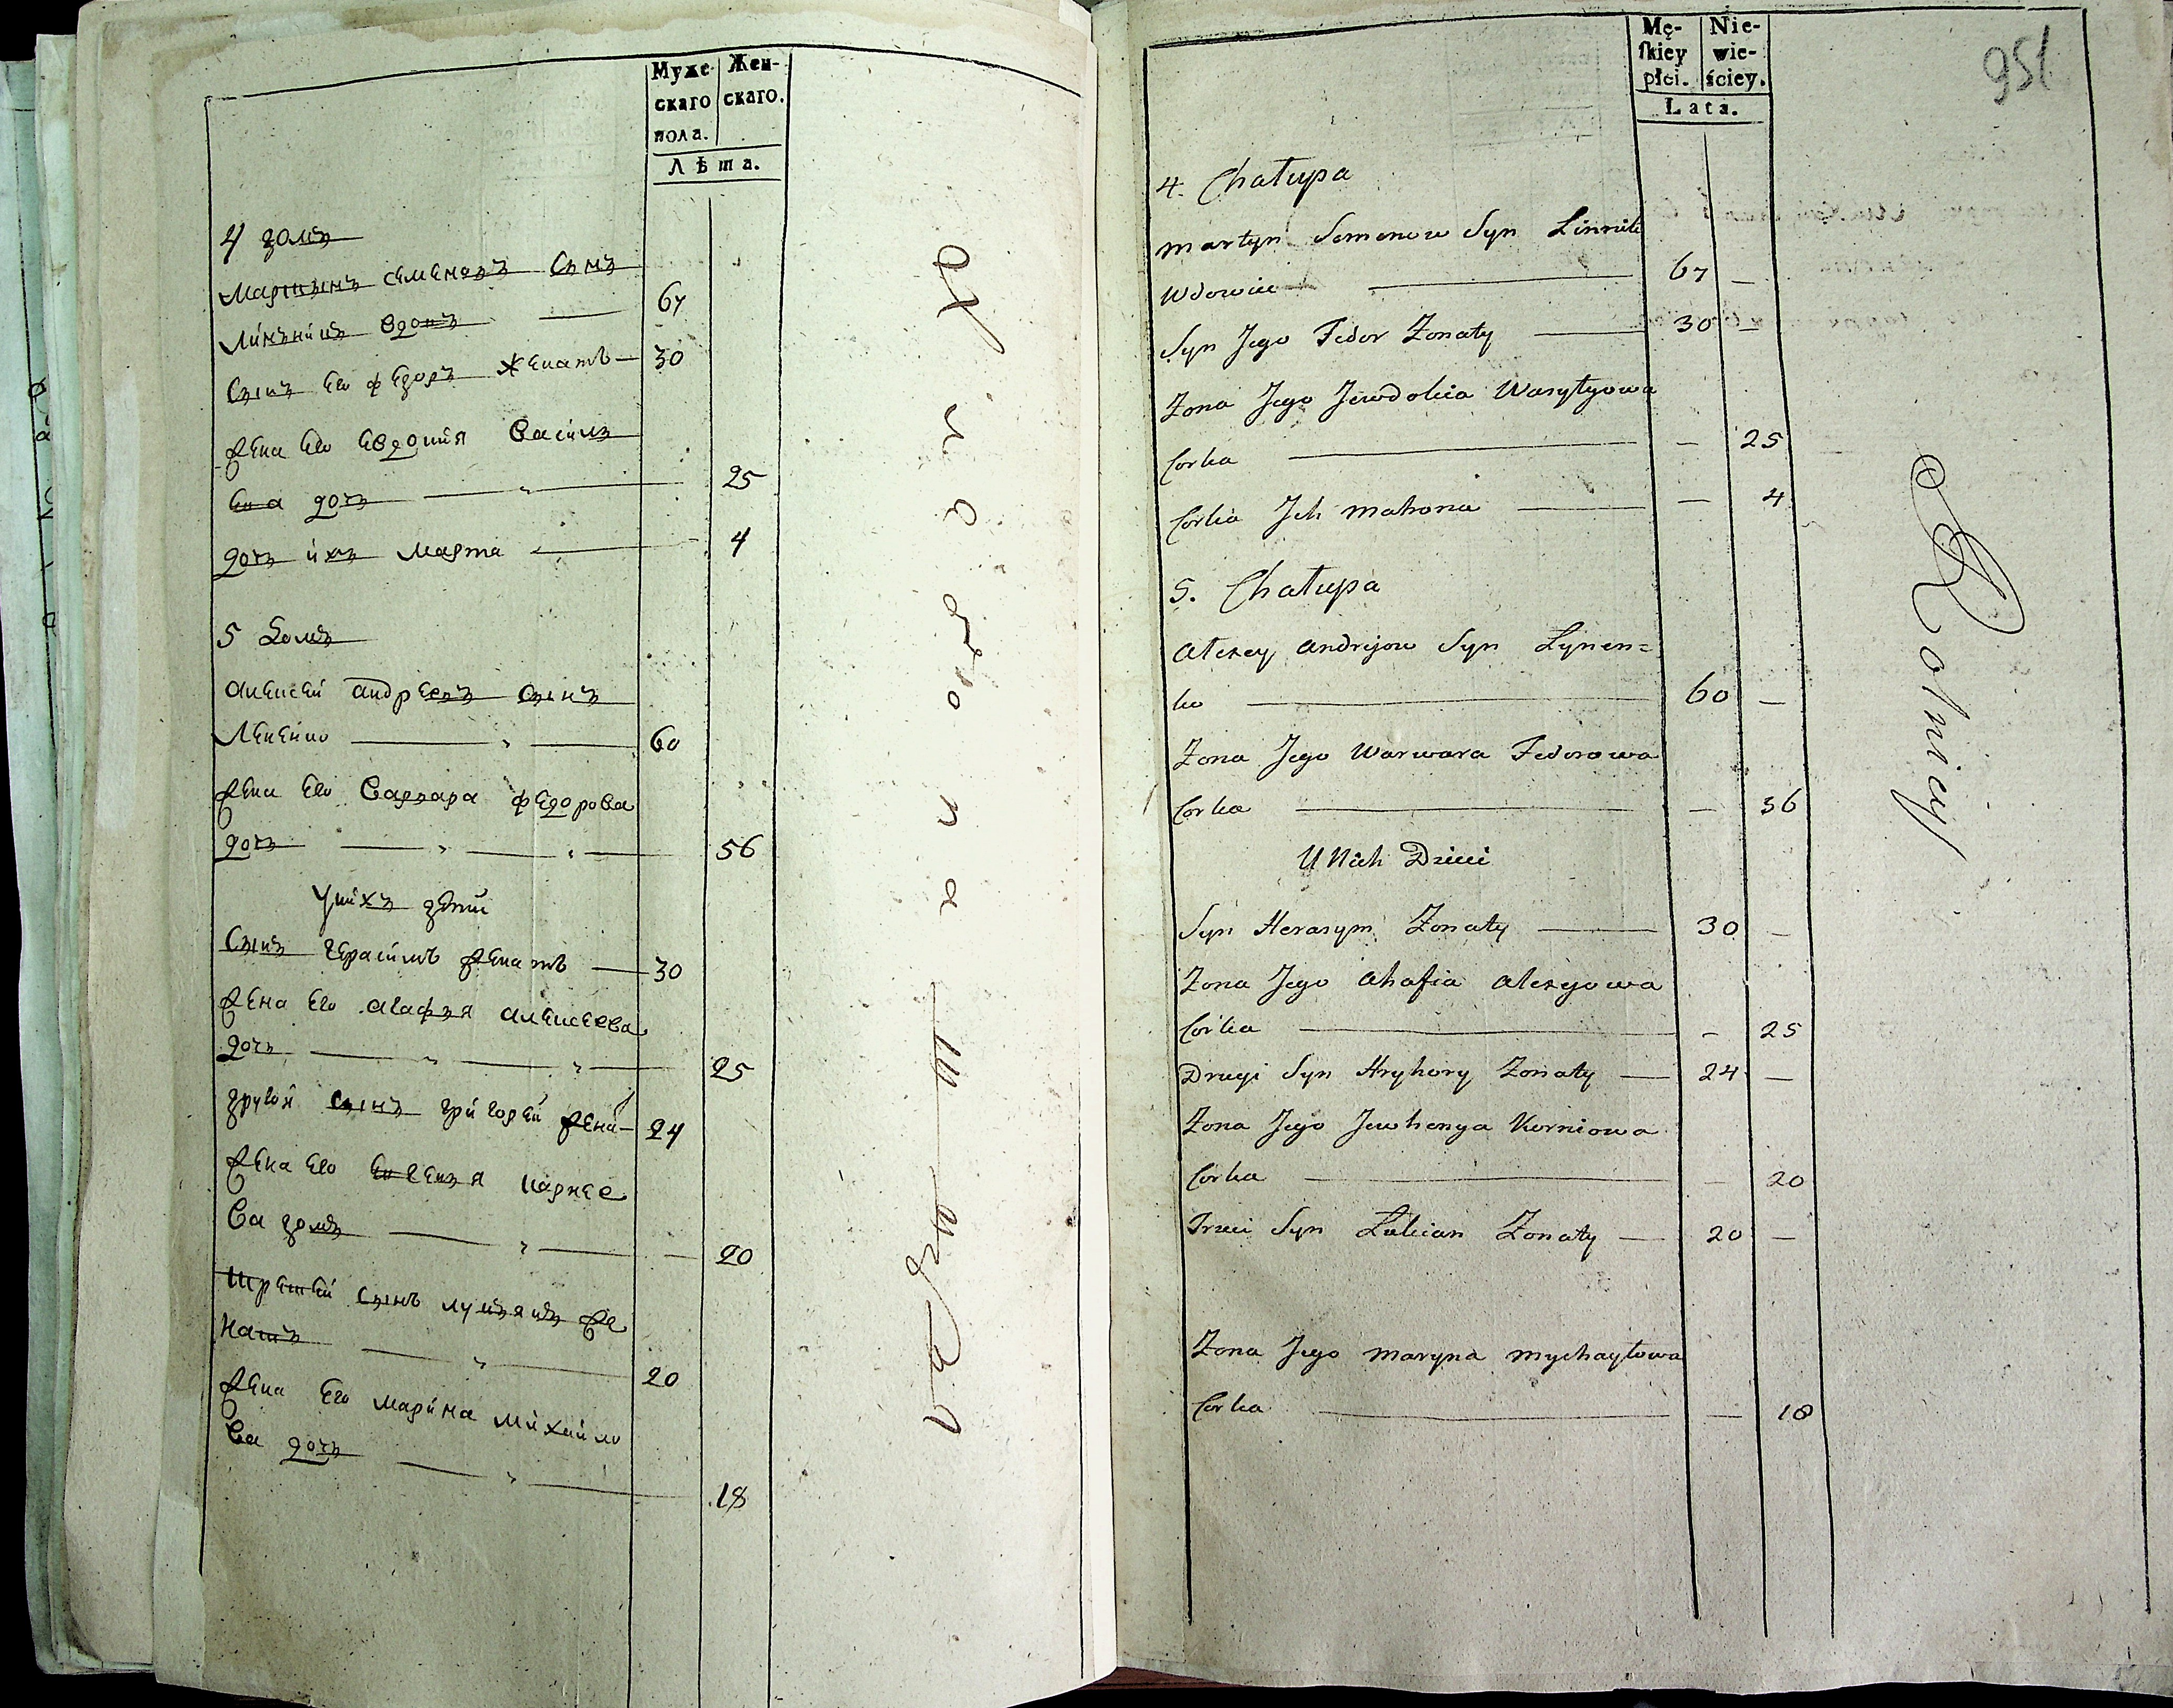 Муже
скаго
пола.
Жен-
скаго.
Лѣта.
4 домъ
Мартынъ Семеновъ Сынъ
Линникъ вдовъ — 67
Сынъ Его Федоръ Женатъ — 30
Жена Его Евдокия Василь
Ева дочь — 25
дочь ихъ Марта — 4
5 домъ
Алексей Андреевъ Сынъ
Лененко — 60
Жена Его Варвара Федорова
дочь — 56
У нихъ дети
Сынъ Герасимъ Женатъ — 30
Жена Его Агафья Алексеева
дочь — 25
другой Сынъ Григорей Жена — 24
Жена Его Евгенья Карнее
ва дочь — 20
третей Сынъ Лукьянъ Же
натъ — 20
Жена Его Марина Михайло
ва дочь — 18
Mę-
ſkiey
płci.
Nie-
wie-
ściey.
Lata.
951
4. Chałupa
Martyn Semenow Syn Linnik
Wdowiec — 67 —
Syn Jego Fedor Żonaty — 30 —
Żona Jego Jewdokia Wasylowa
Corka — 25
Corka Jch Mahona — 4
5. Chałupa
Alexey Andrijow Syn Lynen=
ko — 60 —
Żona Jego Warwara Fedorowa
Corka — 56
U Nich Dzieci
Syn Herasym Żonaty — 30 —
Żona Jego Ahafia Alexyowa
Corka — 25
Drugi Syn Hryhory Żonaty — 24 —
Żona Jego Jewhenya Korniowa
Corka — 20
Trzeci Syn Łukian Żonaty — 20 —
Żona Jego Maryna Mychayłowa
Corka — 18
Rolniey